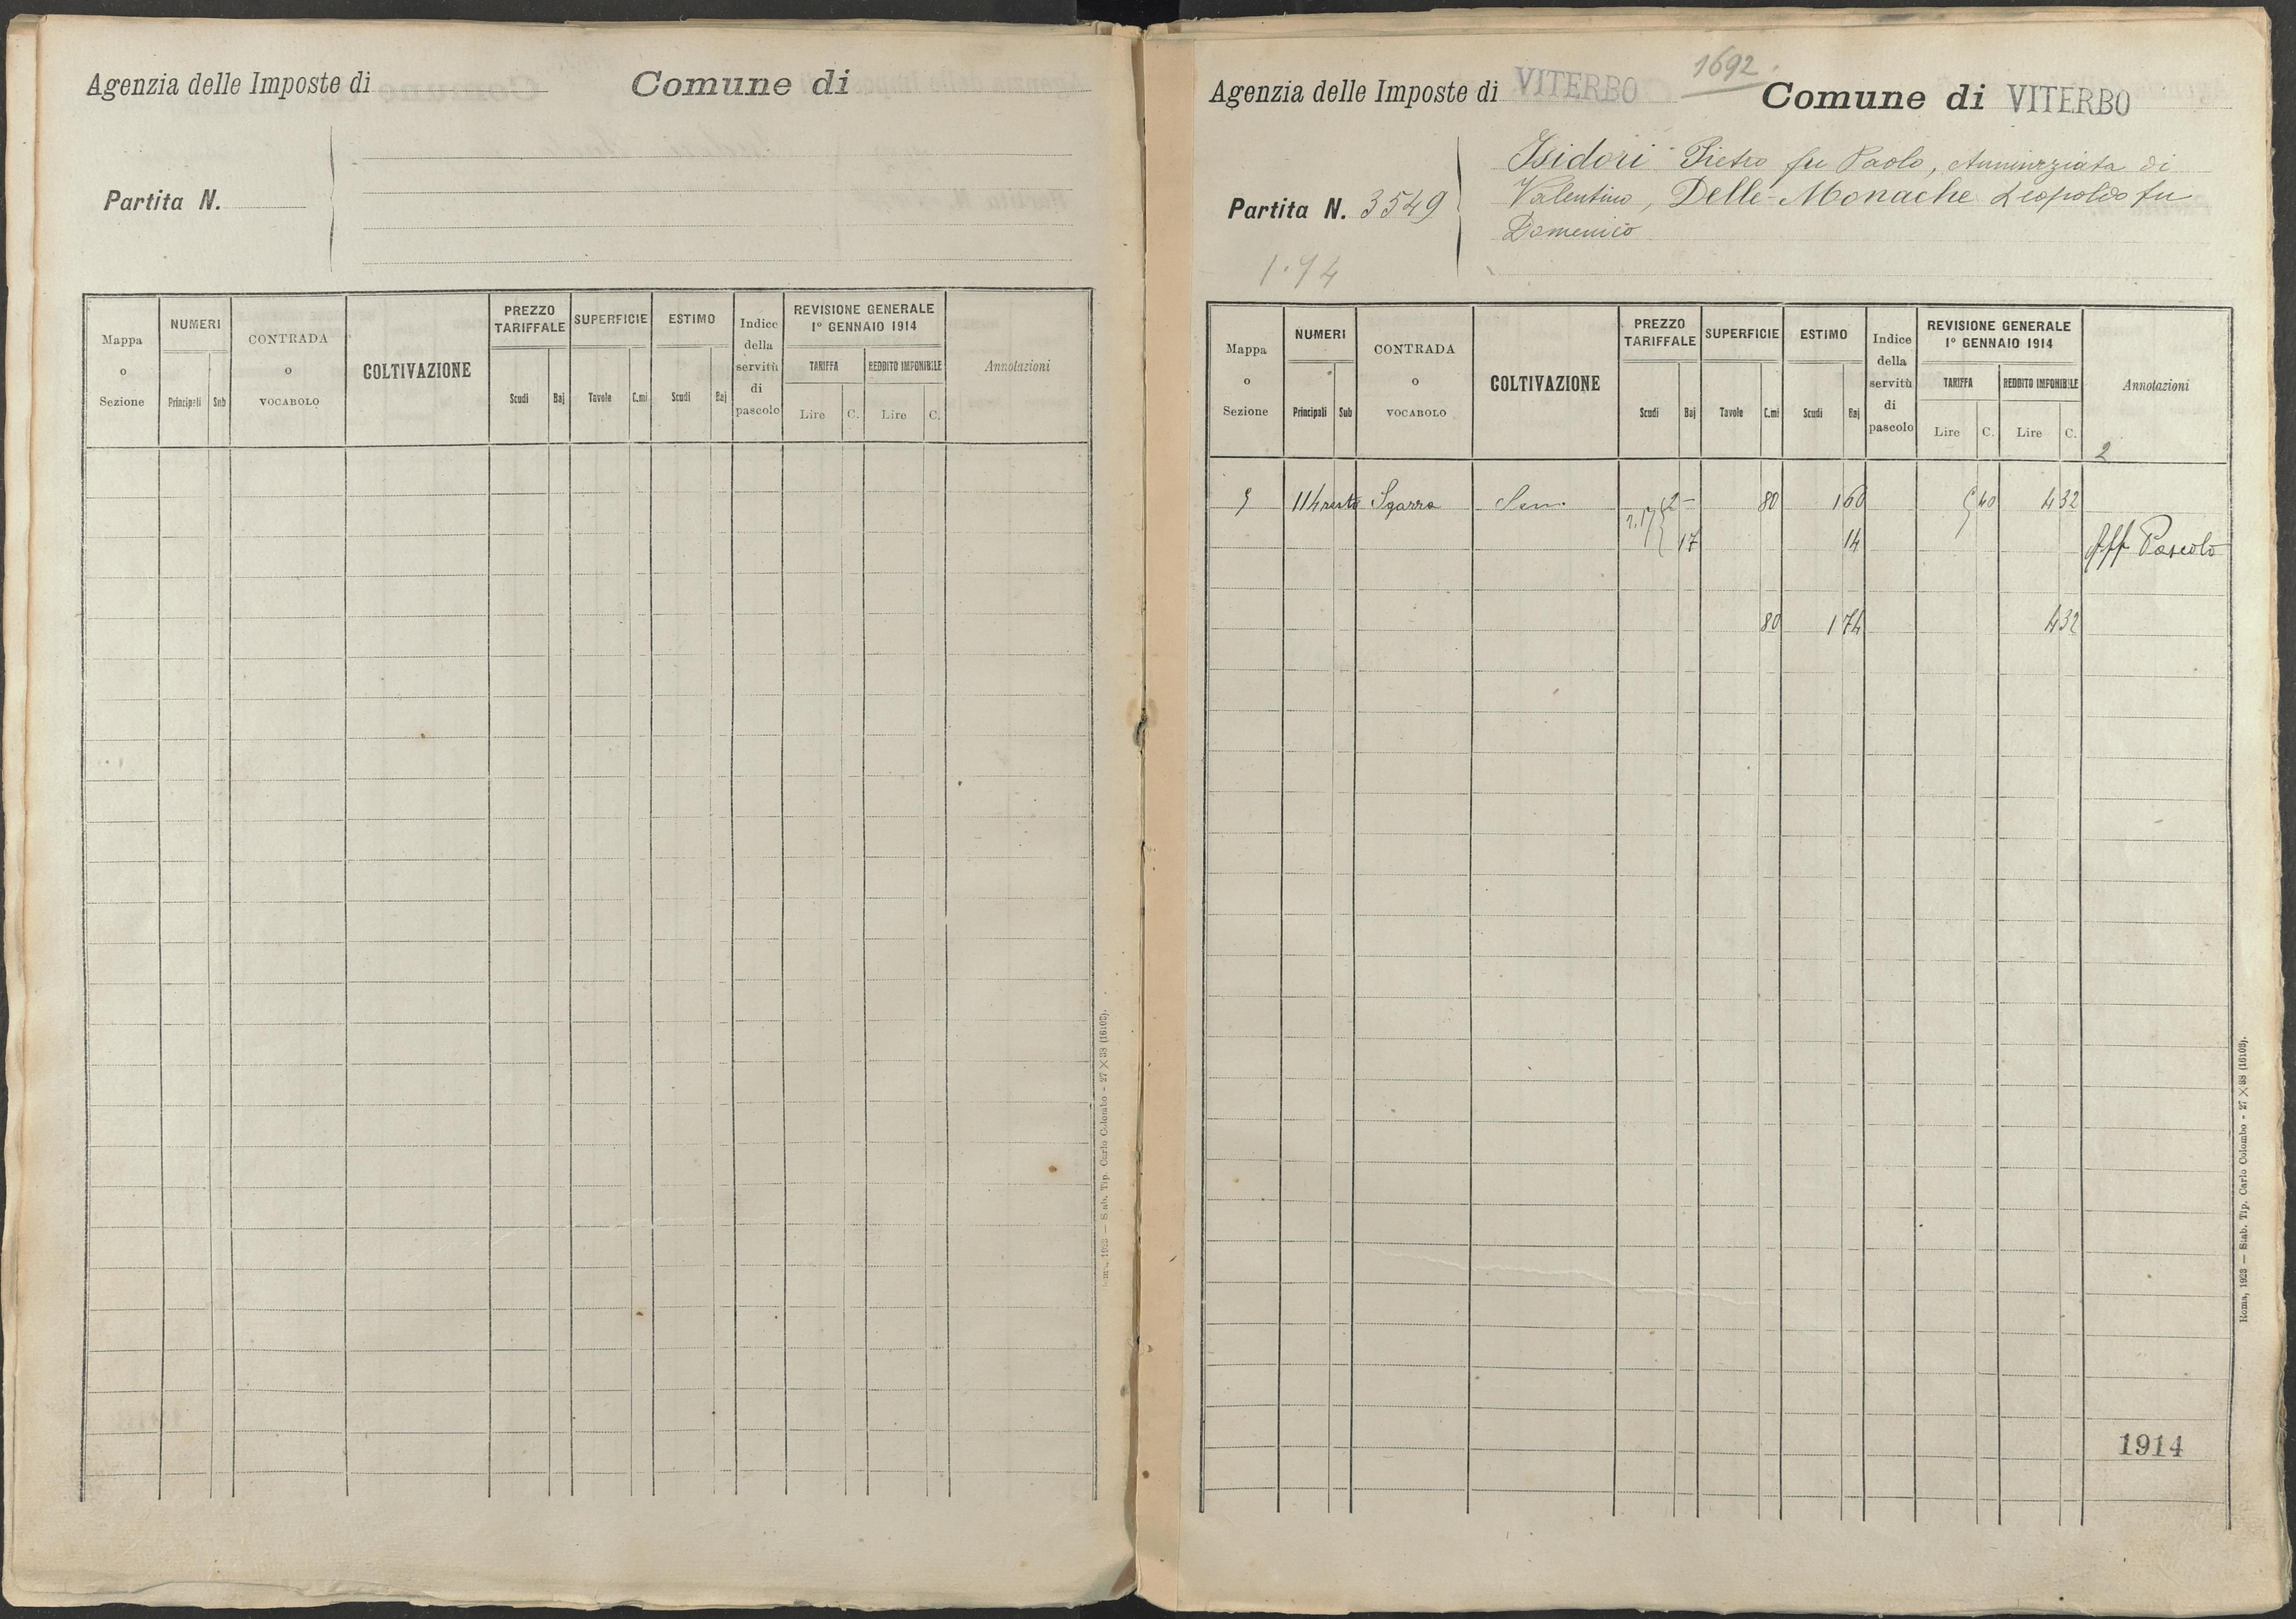 Agenzia delle Imposte di
Comune di
Partita N.
Mappa o Sezione
NUMERI
Principali Sub
CONTRADA o VOCABOLO
COLTIVAZIONE
PREZZO TARIFFALE
Scudi Baj
SUPERFICIE
Tavole C.mi
ESTIMO
Scudi Baj
Indice della servitù di pascolo
REVISIONE GENERALE
1° GENNAIO 1914
TARIFFA
Lire C.
REDDITO IMPONIBILE
Lire C.
Annotazioni
Stab. Tip. Carlo Colombo - 27 × 38 (16103).
1692
Agenzia delle Imposte di VITERBO
Comune di VITERBO
Partita N. 3549
Isidori Pietro fu Paolo, Annunziata di
Valentino, Delle-Monache Leopoldo fu
Domenico
1.74
Mappa o Sezione
NUMERI
Principali Sub
CONTRADA o VOCABOLO
COLTIVAZIONE
PREZZO TARIFFALE
Scudi Baj
SUPERFICIE
Tavole C.mi
ESTIMO
Scudi Baj
Indice della servitù di pascolo
REVISIONE GENERALE
1° GENNAIO 1914
TARIFFA
Lire C.
REDDITO IMPONIBILE
Lire C.
Annotazioni
2
114 resto Sgarra Sem. 2 – 80 1 60 5 40 4 32
2.17 17 14 Aff Pascolo
80 1 74 4 32
1914
Roma, 1923 — Stab. Tip. Carlo Colombo - 27 × 38 (16103).